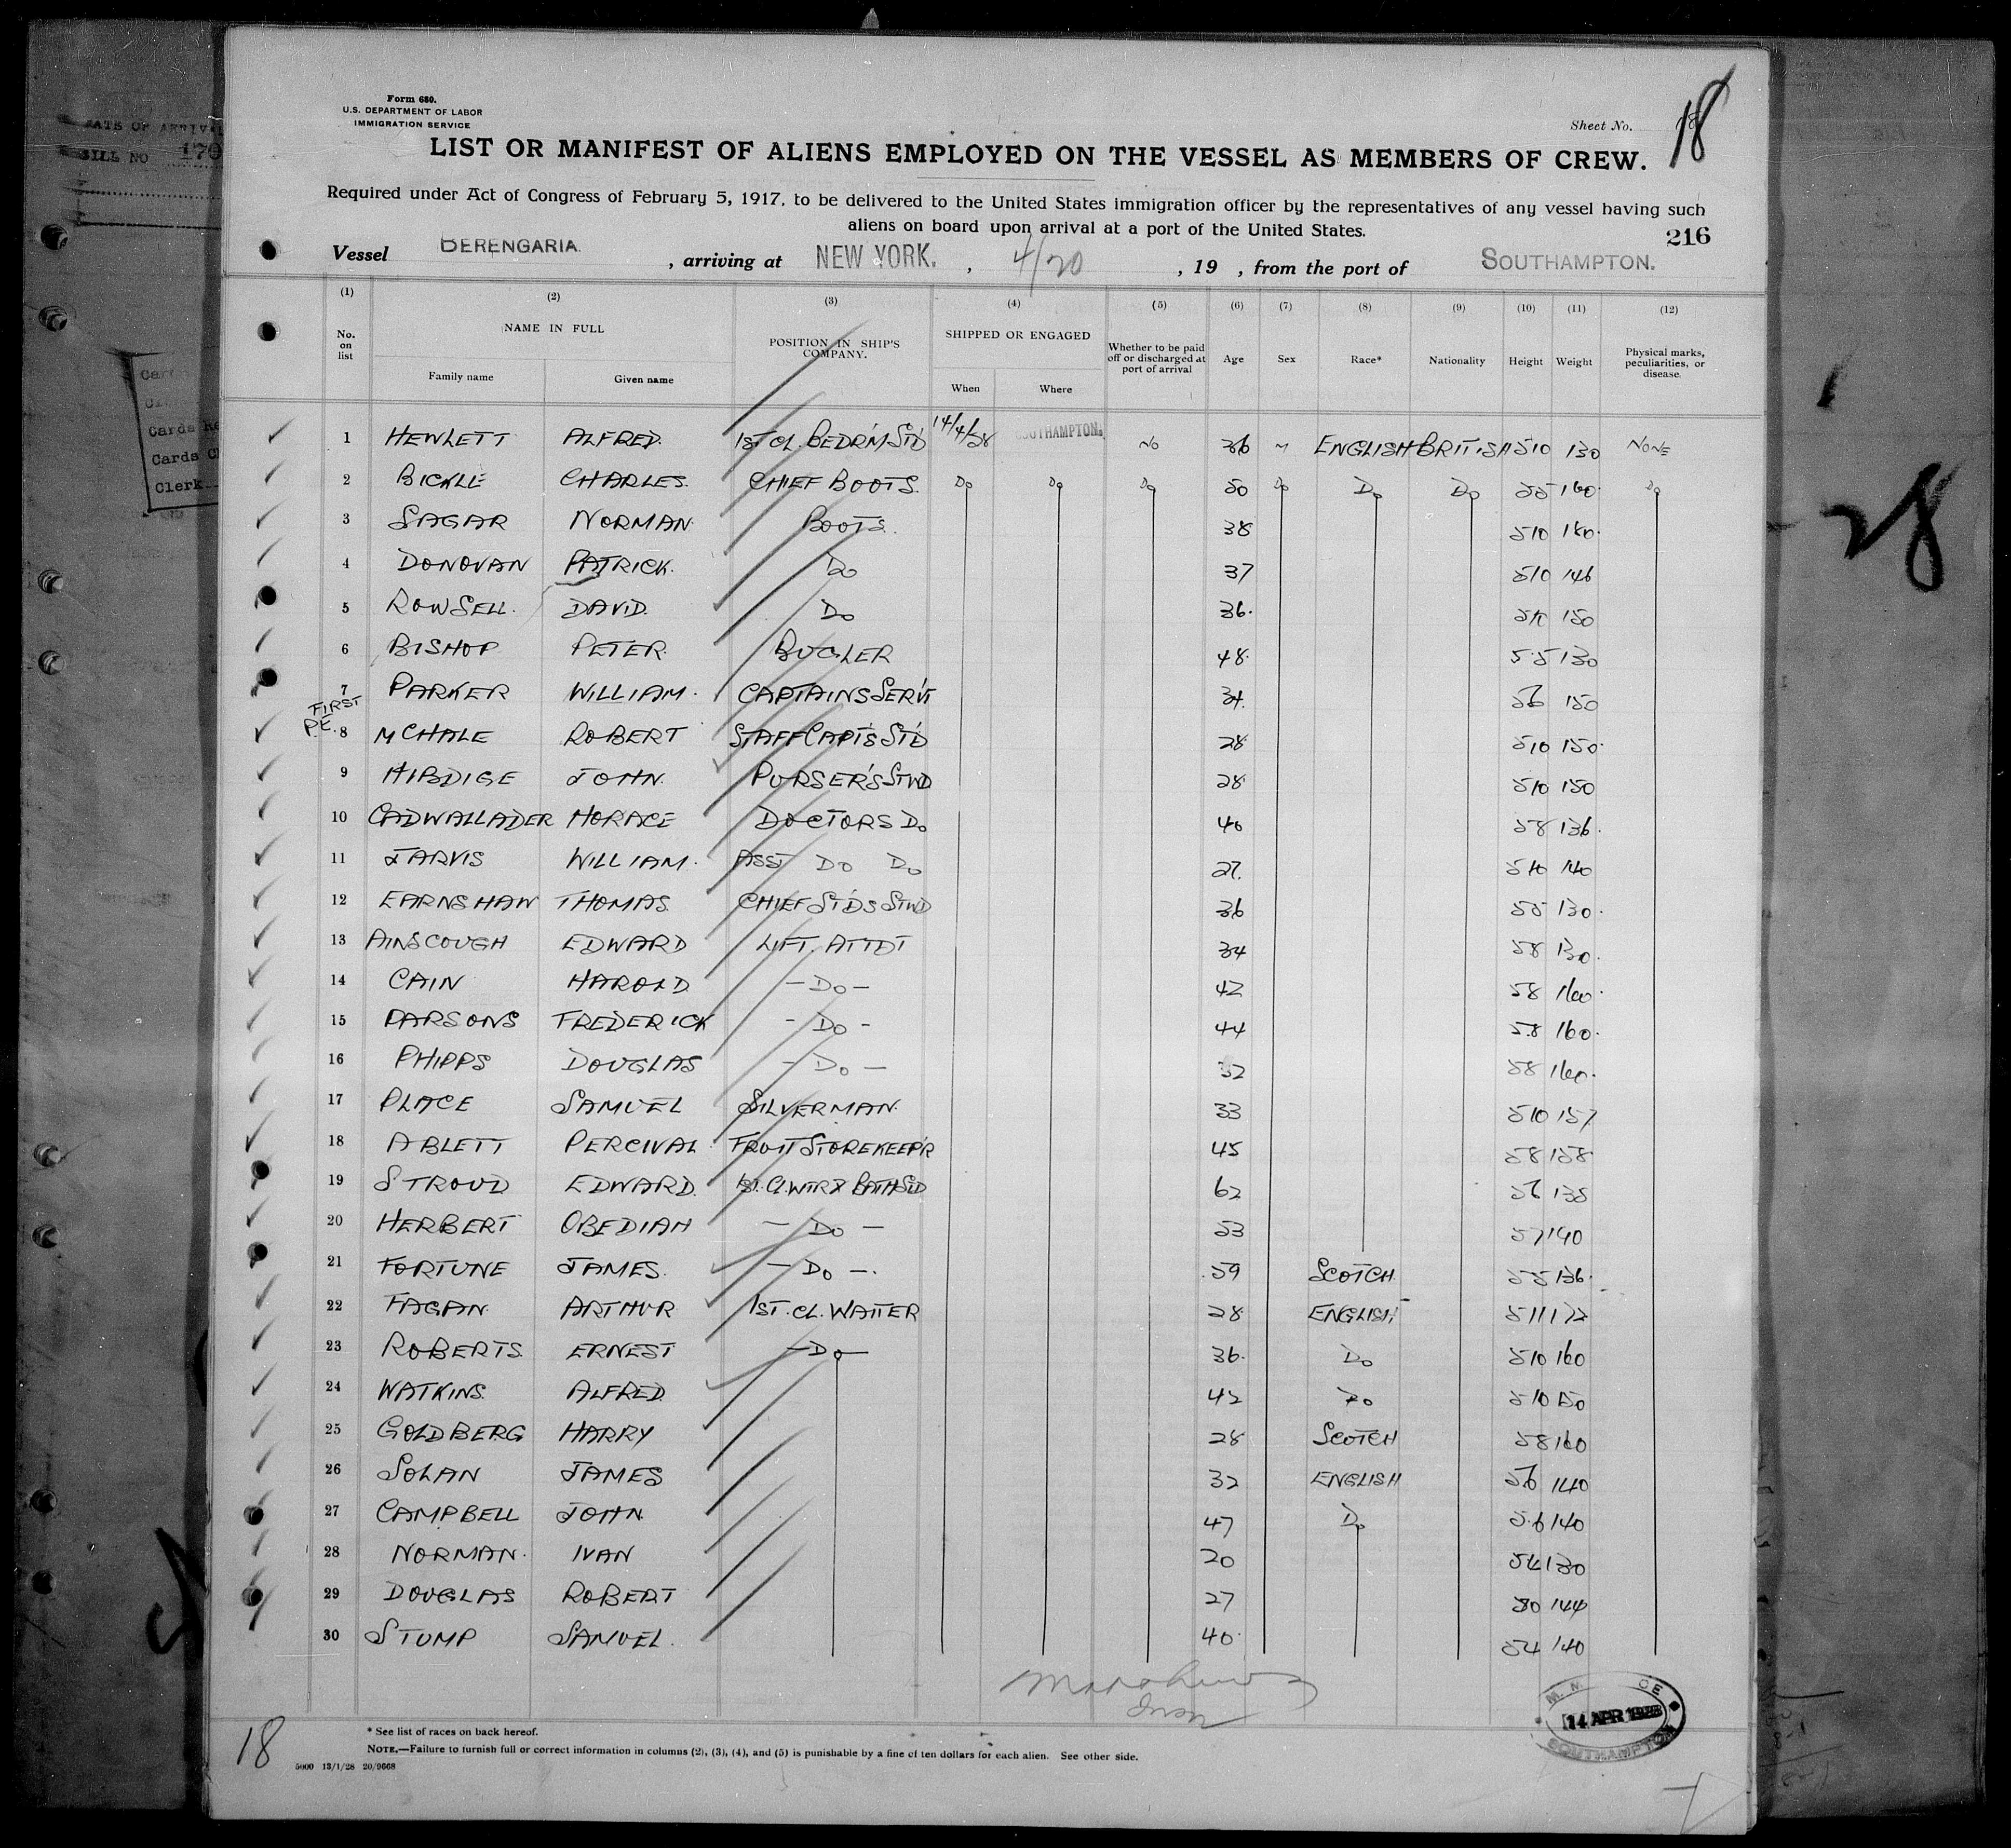 Form 680.
U.S. DEPARTMENT OF LABOR
IMMIGRATION SERVICE
Sheet No. 18
LIST OR MANIFEST OF ALIENS EMPLOYED ON THE VESSEL AS MEMBERS OF CREW.
Required under Act of Congress of February 5, 1917, to be delivered to the United States immigration officer by the representatives of any vessel having such
aliens on board upon arrival at a port of the United States.
216
Vessel BERENGARIA. , arriving at NEW YORK. , 4/20 , 19 , from the port of SOUTHAMPTON.
(1) (2) (3) (4) (5) (6) (7) (8) (9) (10) (11) (12)
No. on list NAME IN FULL Family name Given name POSITION IN SHIP'S COMPANY. SHIPPED OR ENGAGED When Where Whether to be paid off or discharged at port of arrival Age Sex Race* Nationality Height Weight Physical marks, peculiarities, or disease.
1 HEWLETT ALFRED. 1ST CL. BEDR'M ST'D 14/4/28 SOUTHAMPTON. NO 36 M ENGLISH BRITISH 510 130 NONE
2 BICKLE CHARLES. CHIEF BOOTS. DO DO DO 50 DO DO DO 55 160. DO
3 SAGAR NORMAN. BOOTS. 38 510 180.
4 DONOVAN PATRICK. DO 37 510 146
5 ROWSELL. DAVID. DO 36. 510 150
6 BISHOP PETER. BUGLER 48. 5.5 130
7 PARKER WILLIAM. CAPTAINS SERV'T 34. 56 150
FIRST
P.E. 8 MCHALE ROBERT STAFF CAPT'S ST'D 28 510 150.
9 HIBDIGE JOHN. PURSER'S STWD 28 510 150
10 CADWALLADER HORACE DOCTORS DO 40 58 136.
11 JARVIS WILLIAM. ASST DO DO 27. 510 140
12 EARNSHAW THOMAS. CHIEF ST'DS STWD 36 55 130.
13 AINSCOUGH EDWARD LIFT. ATTDT 34 58 130.
14 CAIN HAROLD — DO — 42 58 160.
15 PARSONS FREDERICK - DO - 44 5.8 160.
16 PHIPPS DOUGLAS - DO — 32 58 160.
17 PLACE SAMUEL SILVERMAN. 33 510 157
18 ABLETT PERCIVAL FRUIT STOREKEEP'R 45 58 158
19 STROUD EDWARD. 1ST. CL. WTR & BATH STD 62 56 135
20 HERBERT OBEDIAH — DO — 53 57 140
21 FORTUNE JAMES. — DO —. 59 SCOTCH. 55 136.
22 FAGAN. ARTHUR 1ST. CL. WAITER 28 ENGLISH 511 172
23 ROBERTS. ERNEST — DO — 36. DO 510 160
24 WATKINS. ALFRED. 42 DO 510 150
25 GOLDBERG HARRY 28 SCOTCH 58 160
26 SOLAN JAMES 32 ENGLISH 56 140
27 CAMPBELL JOHN. 47 DO 5.6 140
28 NORMAN. IVAN 20 54 130
29 DOUGLAS ROBERT 27 144
30 STUMP SAMUEL. 40. 54 140
14 APR 1928
SOUTHAMPTON
18
* See list of races on back hereof.
NOTE.—Failure to furnish full or correct information in columns (2), (3), (4), and (5) is punishable by a fine of ten dollars for each alien. See other side.
5000 13/1/28 20/9668
DATE OF ARRIVAL
BILL NO 170
Cards
Cards
Clerk
28